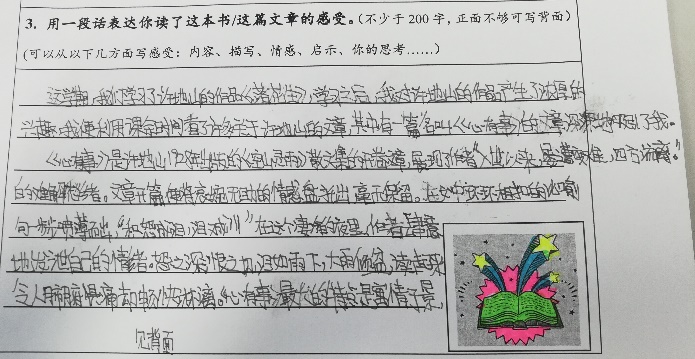 3. 用一段话表达你读了这本书/这篇文章的感受。(不少于 200 字，正面不够可写背面)
(可以从以下几方面写感受：内容、描写、情感、启示、你的思考……)
这学期,我们学习了许地山的作品《落花生》,学习之后,我对许地山的作品产生了浓厚的
兴趣,我便利用课余时间看了许多关于许地山的文章,其中有一篇名叫《心有事》的文章深深地吸引了我。
《心有事》是许地山《空山灵雨》散文集的开卷章,展现了作者"入世以来,屡遭变难,四方流离"
的情绪。文章开篇便将哀怨无助的情感盘托出,毫不保留。在文中环环相扣的
句 "积怨成泪,泪成川!" 在这个凄清的夜里,作者
地发泄自己的情绪。怨之深,恨之切,泪如雨下,大雨倾盆,读起来
令人痛却畅快淋漓。《心有事》最大的特点是寓情于景,
见背面